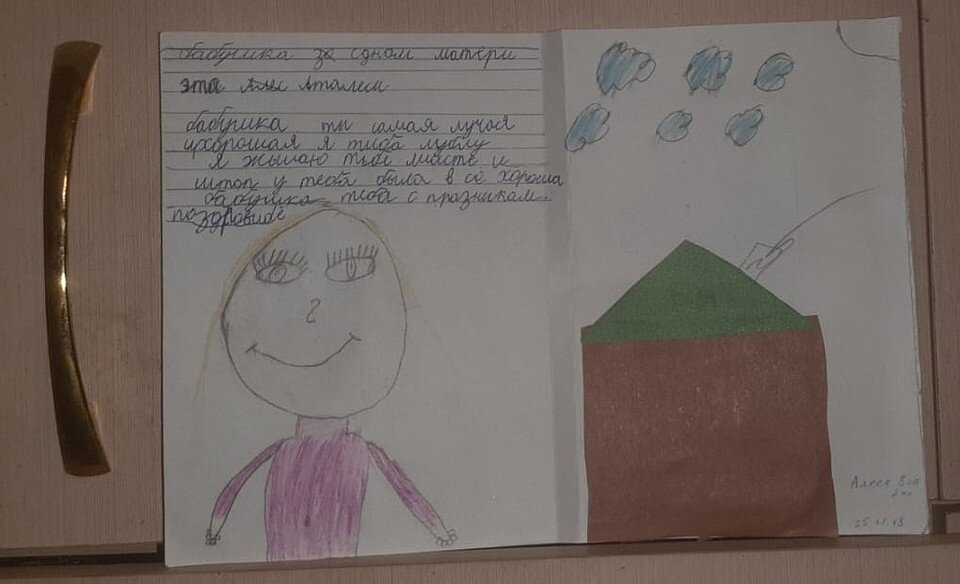 бабушка за одном матери
эта Алес Аталеса
бабушка ты самая лучая
ихорошая я тиба люблу
я жылаю тибе
штоп у тебя была в со хороша
бабушка тебя с празникам
поздравиае
Алеса
25.11.18